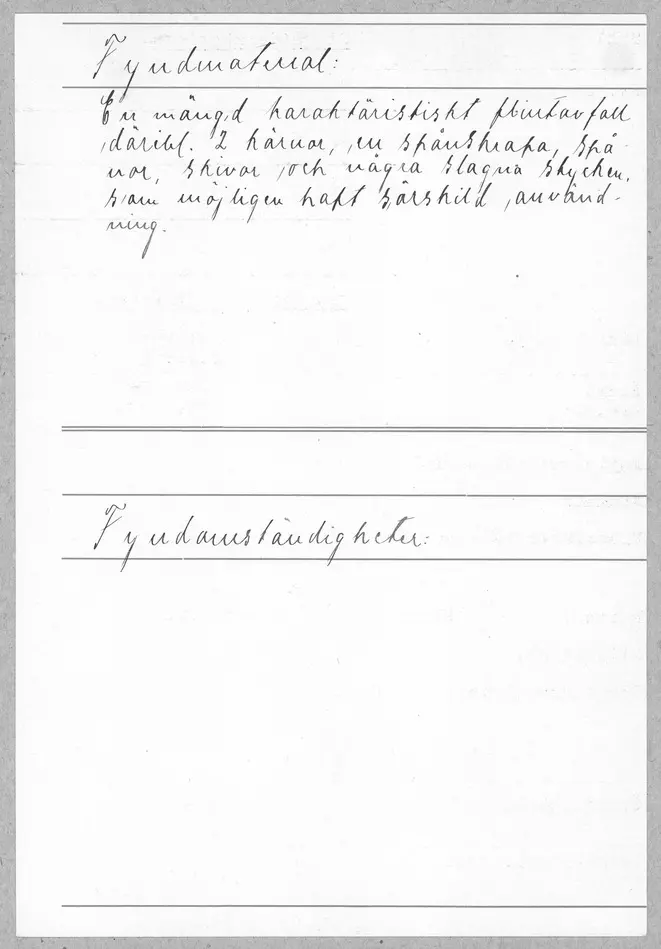 Fyndmaterial:
En mängd karaktäristiskt flintavfall
däribl. 2 kärnor, en spånskrapa, spå-
nor, skivor och några slagna stycken,
som möjligen haft särskild använd-
ning.
Fyndomständigheter: